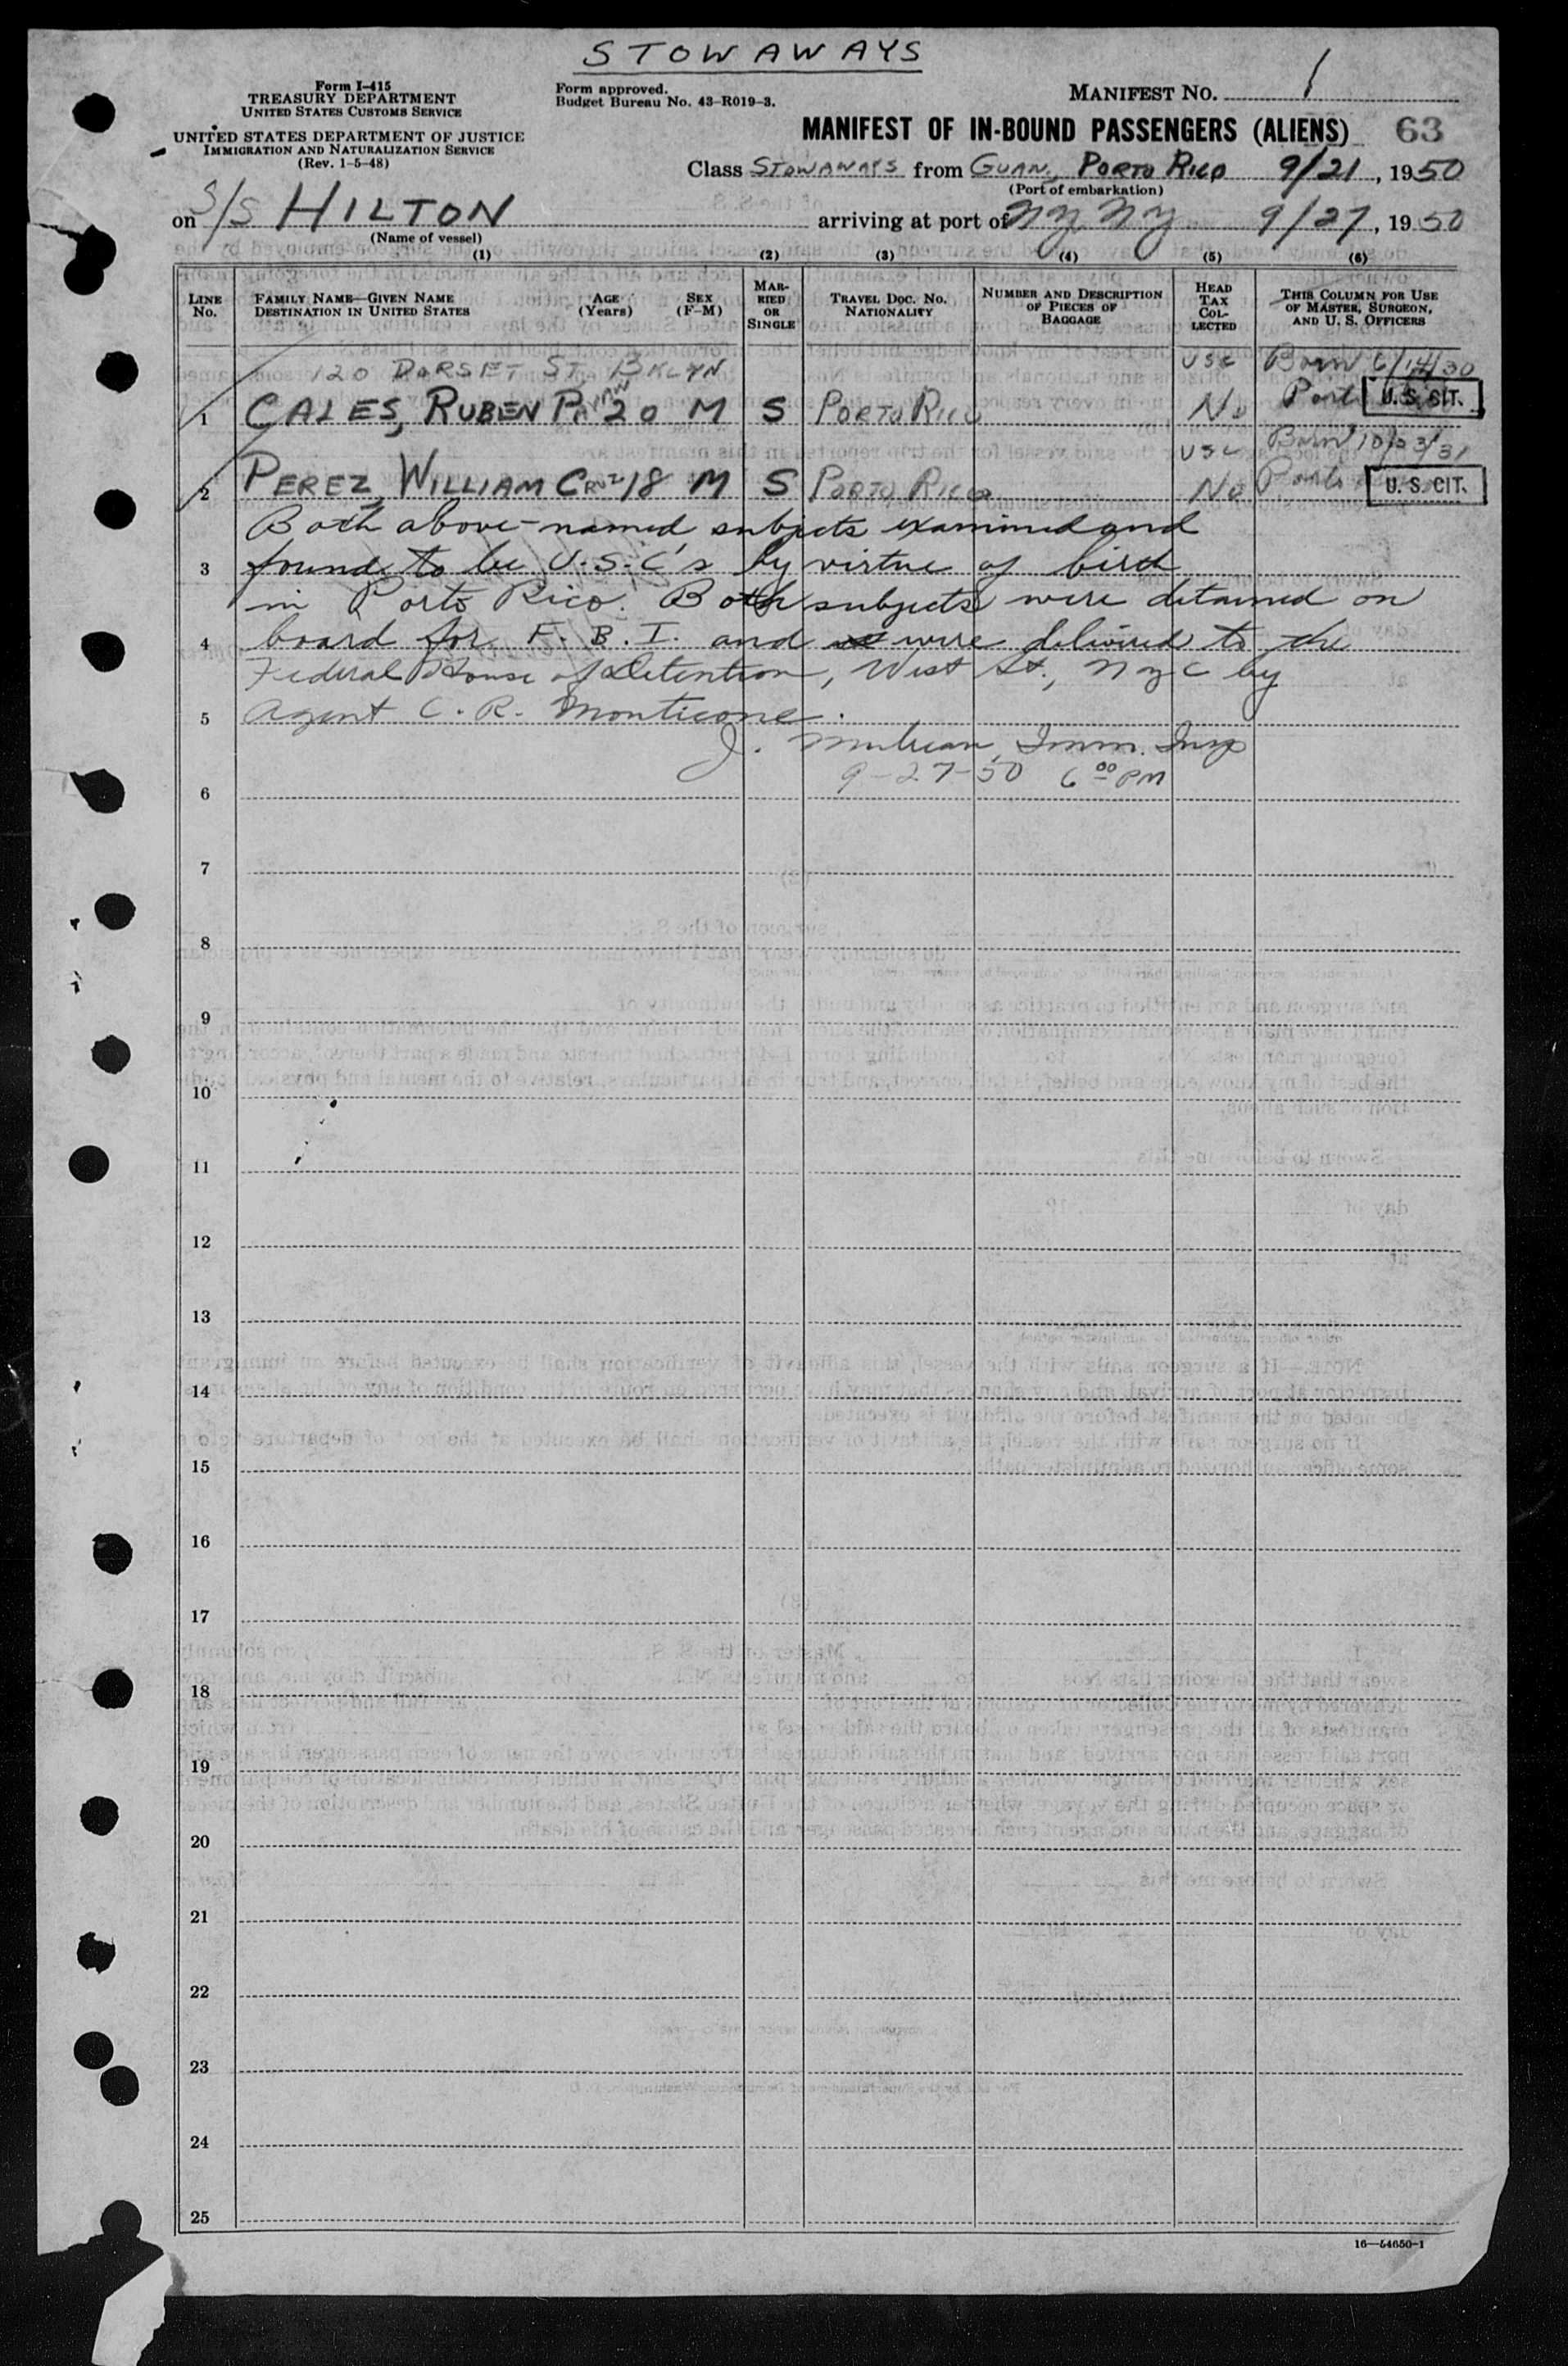 STOWAWAYS
Form I-415
TREASURY DEPARTMENT
UNITED STATES CUSTOMS SERVICE
UNITED STATES DEPARTMENT OF JUSTICE
IMMIGRATION AND NATURALIZATION SERVICE
(Rev. 1-5-48)
Form approved.
Budget Bureau No. 43-R019-3.
MANIFEST NO. 1
MANIFEST OF IN-BOUND PASSENGERS (ALIENS) 63
Class STOWAWAYS from GUAN, PORTO RICO 9/21, 1950
(Port of embarkation)
on S/S HILTON arriving at port of NY NY 9/27, 1950
(Name of vessel)
(1) (2) (3) (4) (5) (6)
LINE No. FAMILY NAME—GIVEN NAME DESTINATION IN UNITED STATES AGE (Years) SEX (F-M) MARRIED OR SINGLE TRAVEL DOC. NO. NATIONALITY NUMBER AND DESCRIPTION OF PIECES OF BAGGAGE HEAD TAX COLLECTED THIS COLUMN FOR USE OF MASTER, SURGEON, AND U. S. OFFICERS
120 DORSET ST BKLYN USC Born 6/14/30
1 CALES, RUBEN 20 M S PORTO RICO No Porto U. S. CIT.
USC Born 10/23/31
2 PEREZ, WILLIAM CRUZ 18 M S PORTO RICO No Porto U. S. CIT.
Both above-named subjects examined and
3 found to be U.S.C's by virtue of birth
in Porto Rico. Both subjects were detained on
4 board for F.B.I. and were delivered to the
Federal House of Detention, West St., NYC by
5 Agent C. R. Monticone.
J. Imm. Insp
9-27-50 6 00 PM
6
7
8
9
10
11
12
13
14
15
16
17
18
19
20
21
22
23
24
25
16—54650-1